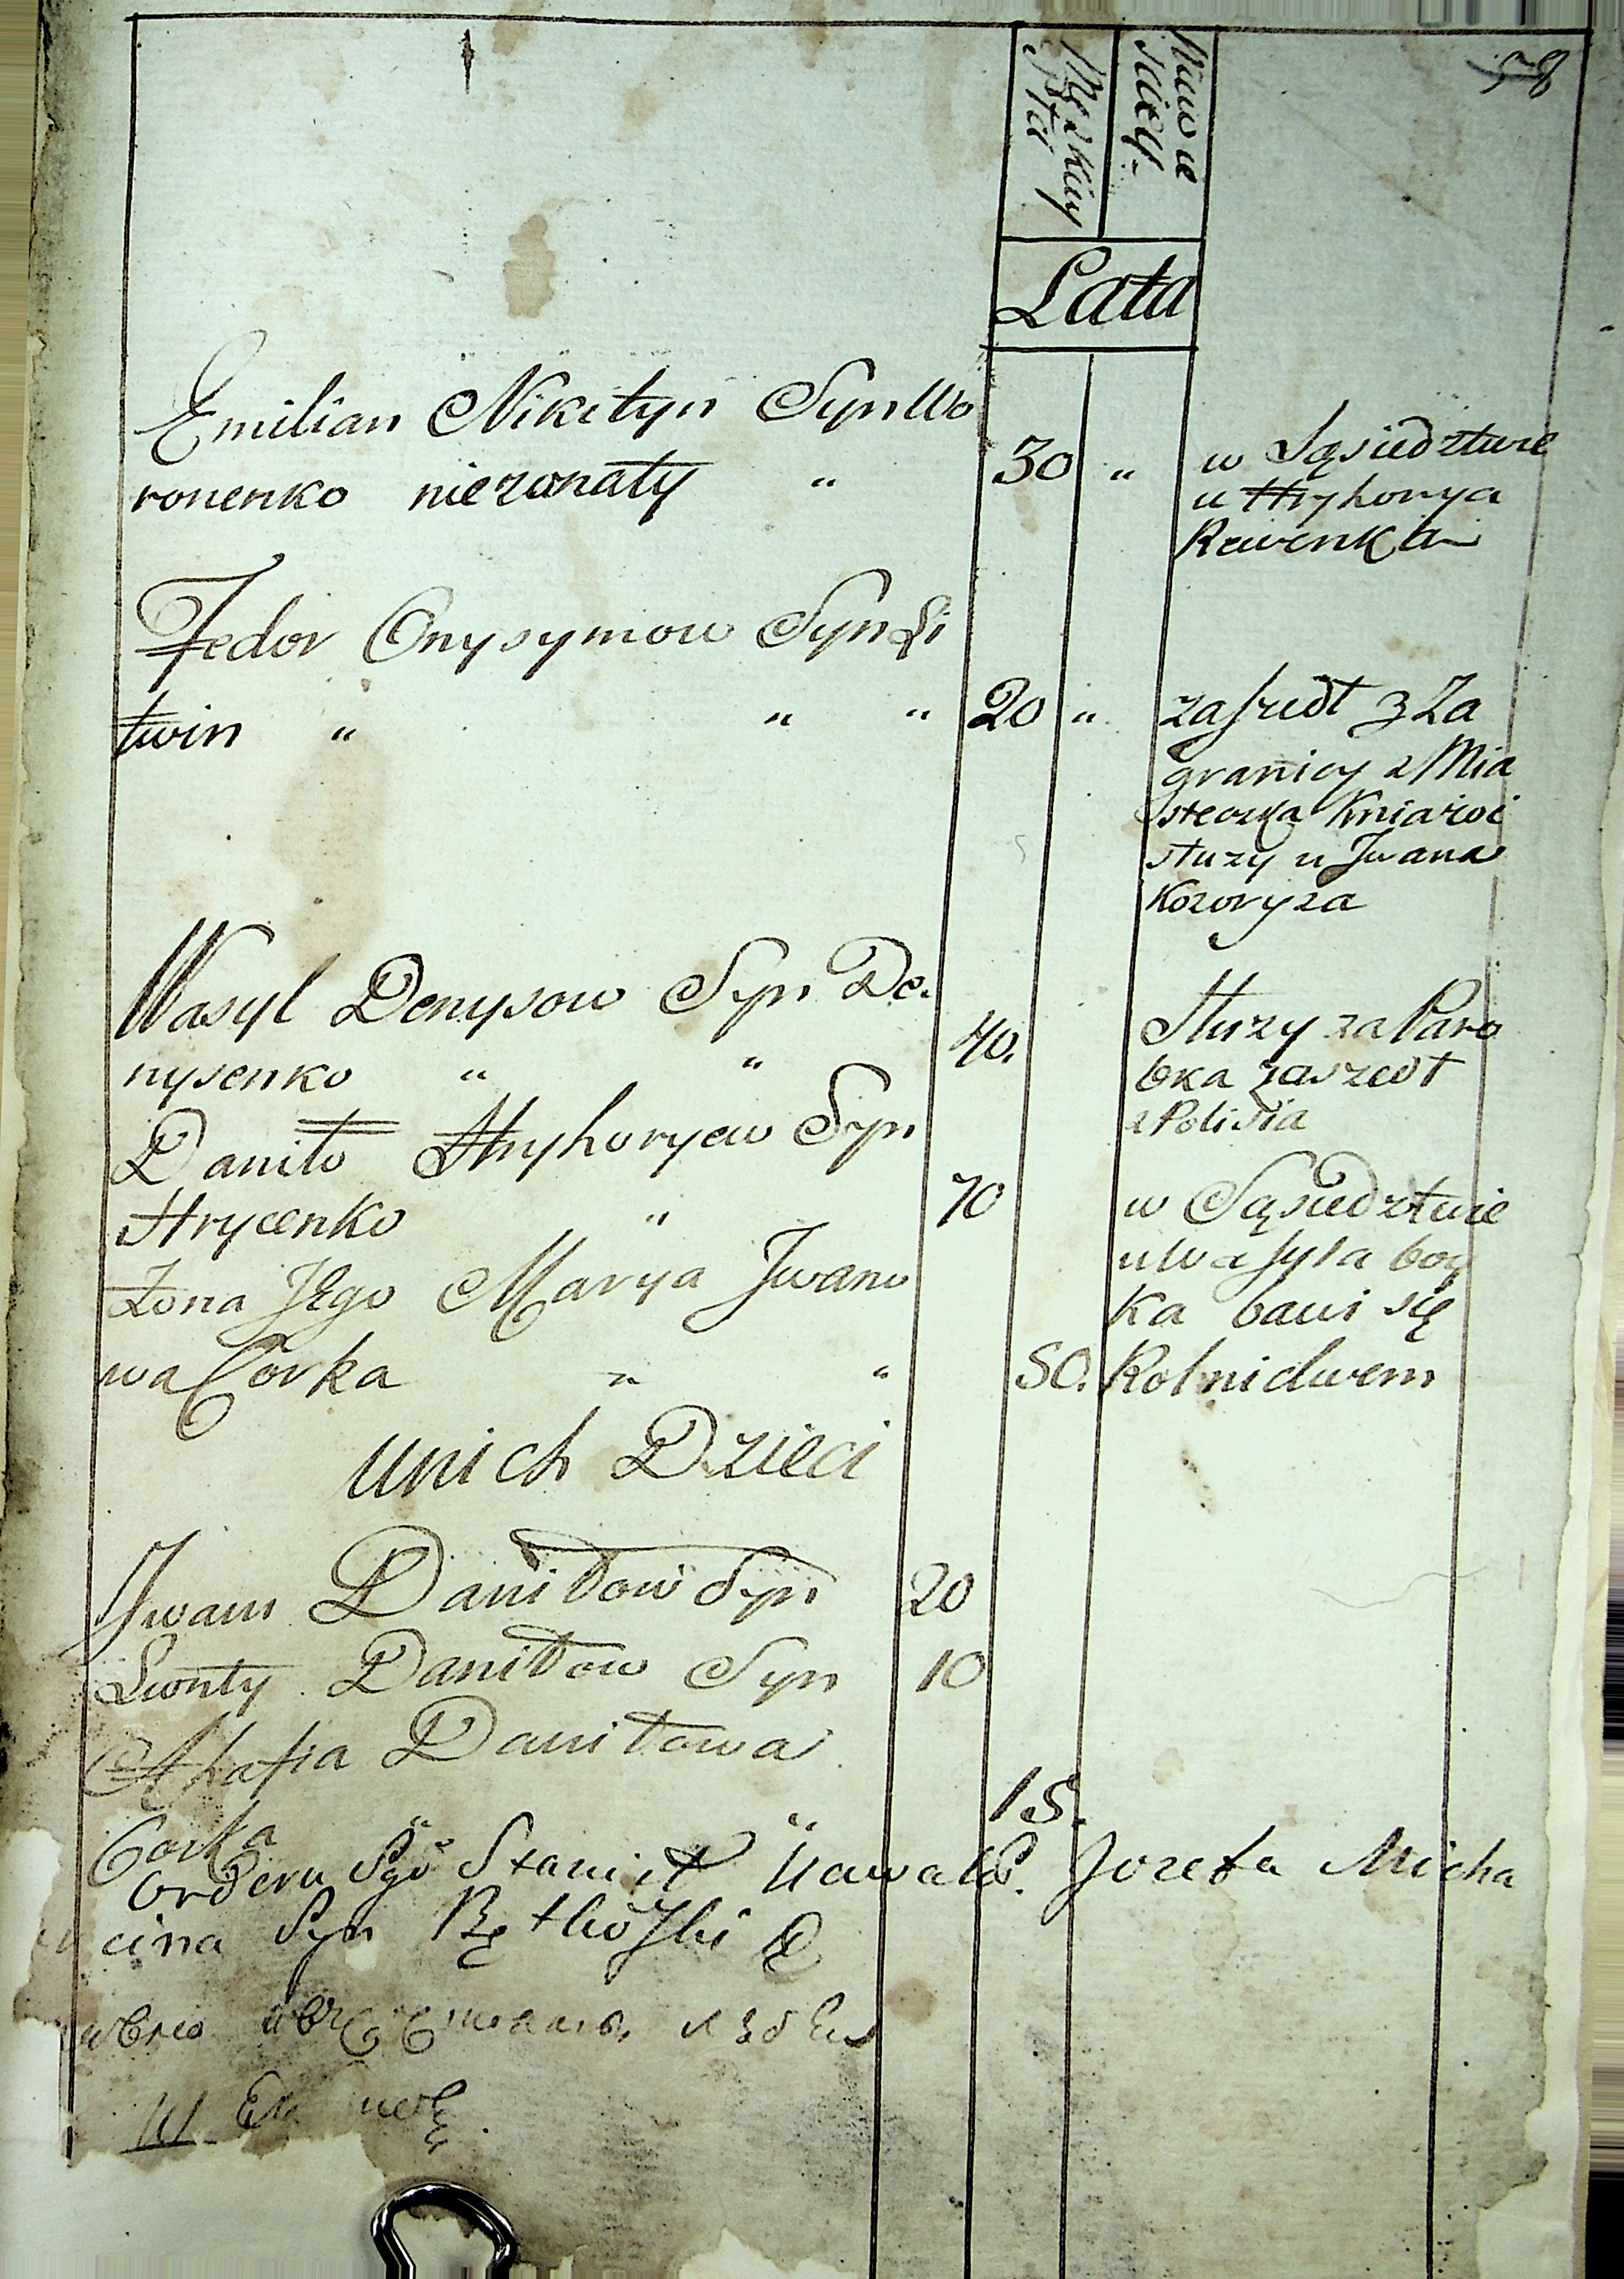 Męzkiey Płci
Niewieściey
Lata
Emilian Nikityn Syn Wo
ronenko niezonaty " 30 " w Sąsiedztwie
u Hryhorya
Rewenka
Fedor Onysymow Syn Li
twin " " " 20 " zaszedł z Za
granicy z Mia
steczka Kniażoi
służy u Jwana
Kozoryza
Wasyl Denysow Syn De-
nysenko " " 40. Służy za Paro
bka zaszedł
z Polisia
Daniło Hryhoryew Syn
Hrycenko " 70 w Sąsiedztwie
u Wasyla boy
ka bawi się
Żona Jego Marya Jwano
wa Corka " " 50. Rolnictwem
u nich Dzieci
Jwan Daniłow Syn 20
Lwonty Daniłow Syn 10
Ahafia Daniłowa
Corka " " 15.
Orderu Sgo Stanisł Kawaler Jozefa Micha
Syn